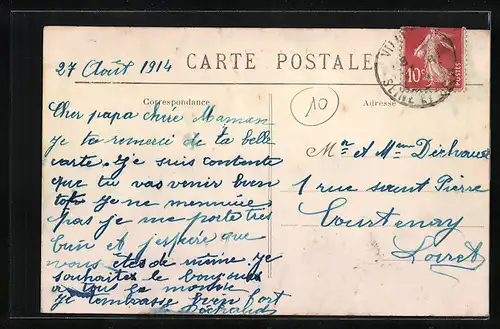 27 Août 1914
CARTE POSTALE
Correspondance
Adresse
10
10c
POSTES
SEINE ET
Cher papa chéré Maman
je ta remerci de ta belle
carte. je suis contente
que tu vas venir bien
tot je ne mennuie
pas je me porte trés
bien et jespére que
vous êtes de même. je
souhaites le bonjour
a tous le monde
je tembrasse bien fort
Mr et Mem
1 rue saint Pierre
Courtenay
Loiret